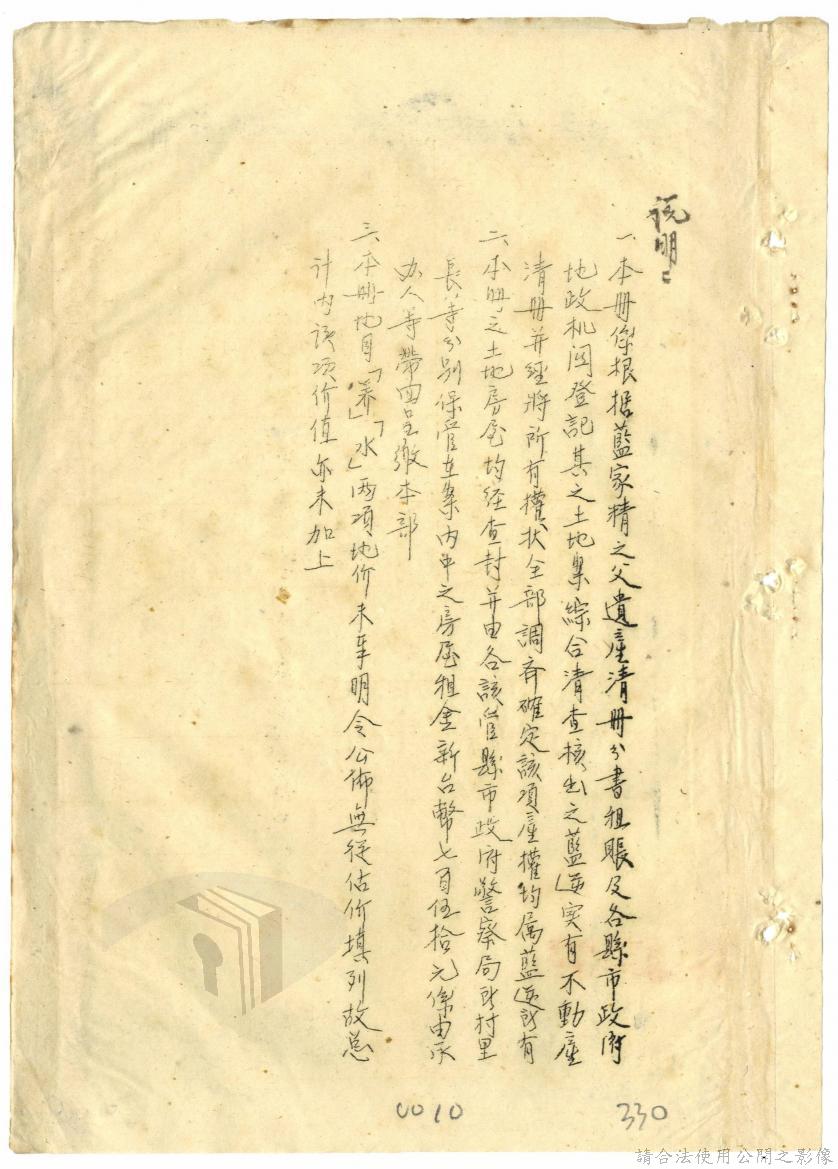 說明：
一、本册係根据藍家精之父遺產清册分書租賬及各縣市政府
地政机関登記其之土地集綜合清查核出之藍逆实有不動產
清册并經將所有權狀全部調齐確定該項產權均属藍逆所有
二、本册之土地房屋均经查封并由各該管縣市政府警察局所村里
長等分别保管在案内中之房屋租金新台幣七百伍拾元係由承
办人等帶回呈缴本部
三、本册地目「养」「水」两項地价未奉明令公佈無從估价填列故总
计内该项价值亦未加上
0010
330
請合法使用公開之影像